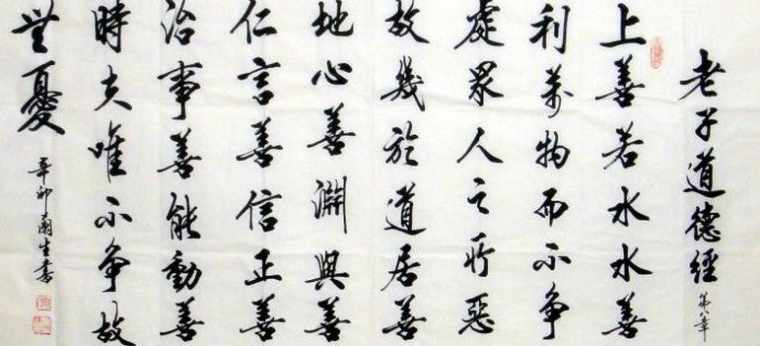 老子道德經
第八章
上善若水水善
利萬物而不争
處眾人之所惡
故幾於道居善
地心善淵與善
仁言善信正善
治事善能動善
時夫唯不争故
無憂
辛卯蘭生書